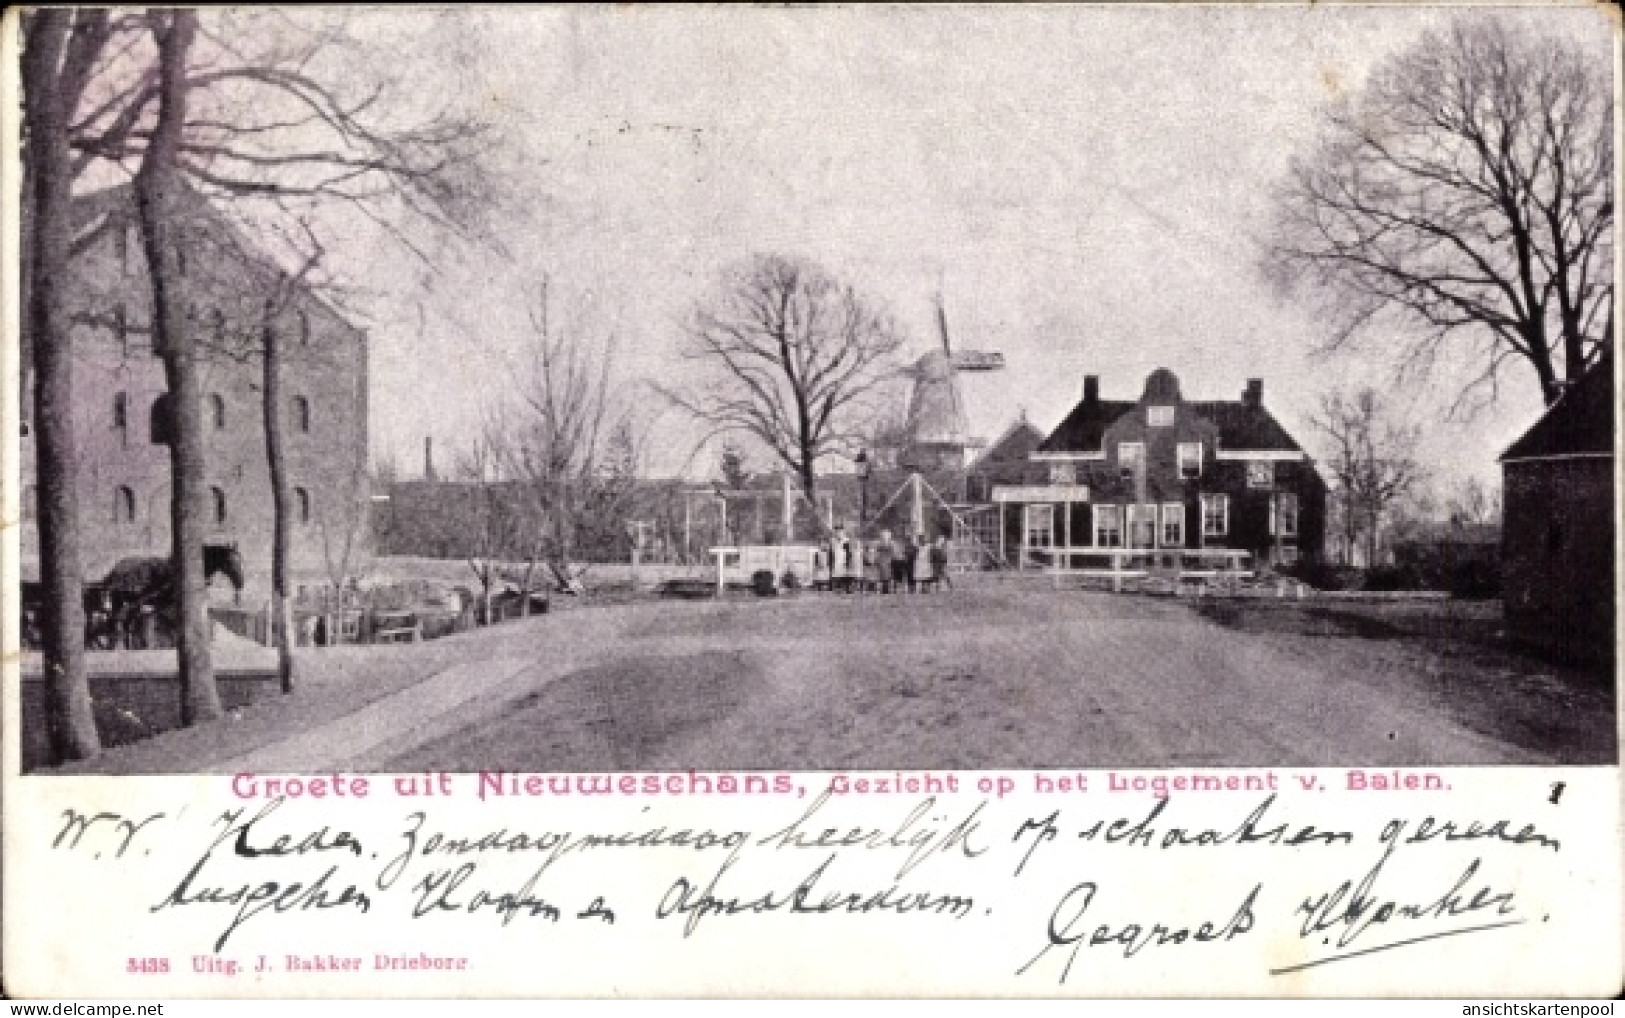 Groete uit Nieuweschans, Gezicht op het Logement v. Balen.
W.V. Heden Zondagmiddag heerlijk op schaatsen gereden
tusschen Hoorn en Amsterdam.
Gegroet
5438 Uitg. J. Bakker Drieborg.
ansichtskartenpool